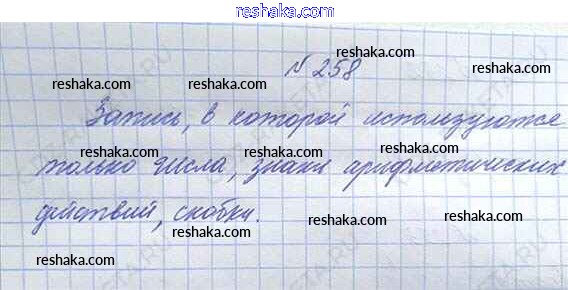 reshaka.com
№ 258
Запись, в которой используются
только числа, знаки арифметических
действий, скобки.
reshaka.com
reshaka.com
reshaka.com
reshaka.com
reshaka.com
reshaka.com
reshaka.com
reshaka.com
reshaka.com
reshaka.com
reshaka.com
reshaka.com
reshaka.com